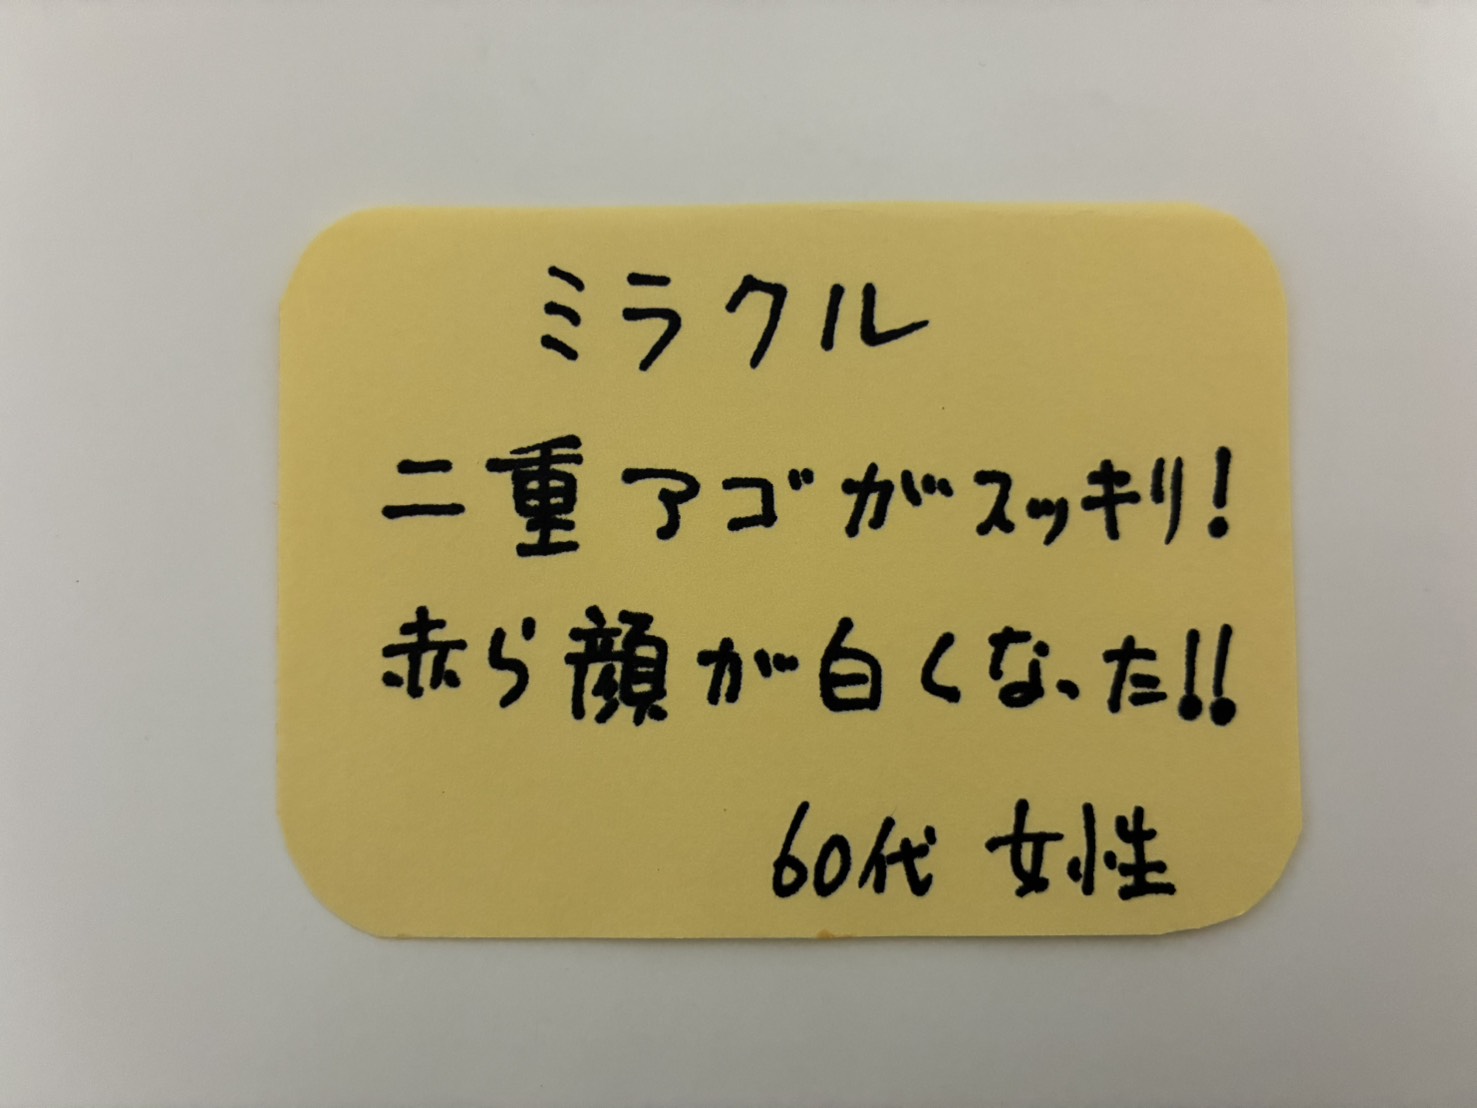 ミラクル
二重アゴがスッキリ!
赤ら顔が白くなった!!
60代 女性